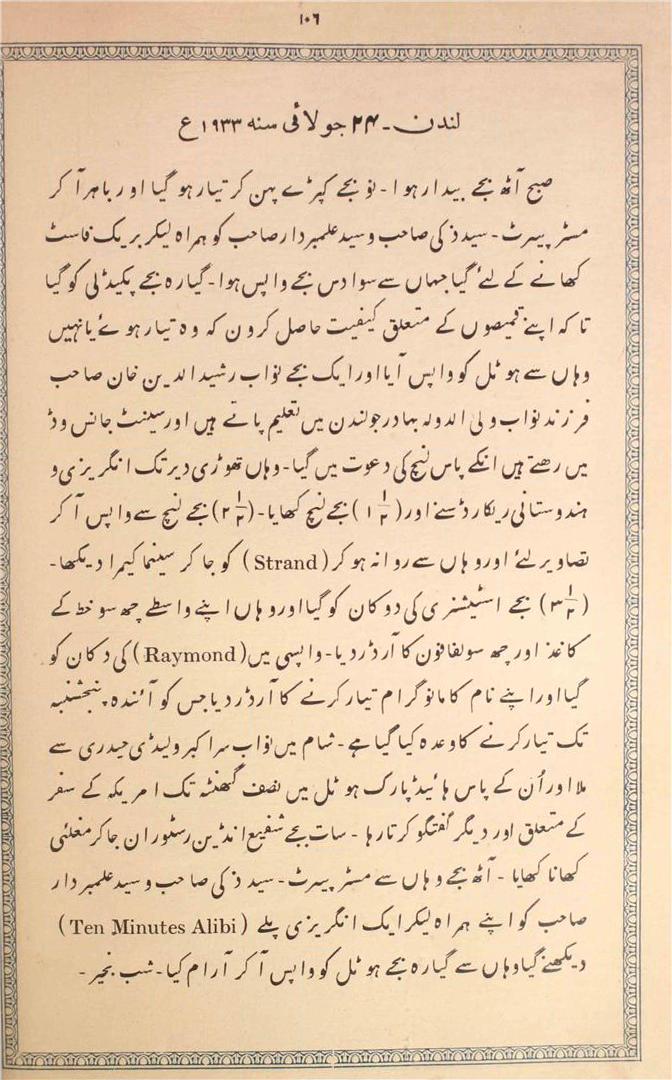 ۱۰۶
لندن - ۲۴ جولائی سنہ ۱۹۳۳ع
صبح آٹھ بجے بیدار ہوا - نو بجے کپڑے پہن کر تیار ہو گیا اور باہر آ کر
مسٹر پیرٹ - سید ذکی صاحب و سید علمبردار صاحب کو ہمراہ لیکر بریک فاسٹ
کھانے کے لئے گیا جہاں سے سوا دس بجے واپس ہوا - گیارہ بجے پکیڈلی کو گیا
تا کہ اپنے قمیصوں کے متعلق کیفیت حاصل کرون کہ وہ تیار ہوۓ یا نہیں
وہاں سے ہوٹل کو واپس آیا اور ایک بجے نواب رشید الدین خان صاحب
فرزند نواب ولی الدولہ بہادر جو لندن میں تعلیم پاتے ہیں اور سینٹ جانس وڈ
میں رهتے ہیں انکے پاس لنچ کی دعوت میں گیا - وہاں تھوڑی دیر تک انگریزی و
ہندوستانی ریکارڈ سنے اور (۱ ۱/۲) بجے لنچ کھایا - (۲ ۱/۲) بجے لنچ سے واپس آ کر
تصاویر لئے اور وہاں سے روانہ ہو کر (Strand) کو جا کر سینما کیمرا دیکھا -
(۳ ۱/۲) بجے اسٹیشنری کی دوکان کو گیا اور وہاں اپنے واسطے چھ سو خط کے
کاغذ اور چھ سو لفافون کا آرڈر دیا - واپسی میں (Raymond) کی دکان کو
گیا اور اپنے نام کا مانوگرام تیار کرنے کا آرڈر دیا جس کو آئندہ پنجشنبہ
تک تیار کرنے کا وعدہ کیا گیا ہے - شام میں نواب سر اکبر و لیڈی حیدری سے
ملا اور اُن کے پاس ہائیڈ پارک ہوٹل میں نصف گھنٹہ تک امریکہ کے سفر
کے متعلق اور دیگر گفتگو کرتا رہا - سات بجے شفیع انڈین رسٹوران جا کر مغلئی
کھانا کھایا - آٹھ بجے وہاں سے مسٹر پیرٹ - سید ذکی صاحب و سید علمبردار
صاحب کو اپنے ہمراہ لیکر ایک انگریزی پلے (Ten Minutes Alibi)
دیکھنے گیا وہاں سے گیارہ بجے ہوٹل کو واپس آ کر آرام کیا - شب بخیر -